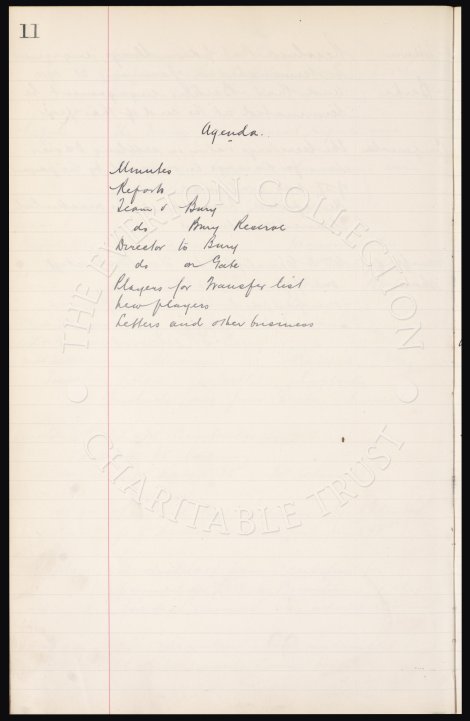 11
Agenda.
Minutes
Reports
Team v Bury
do Bury Reserve
Director to Bury
do on Gate
Players for Transfer list
New players
Letters and other business
THE EVERTON COLLECTION
CHARITABLE TRUST